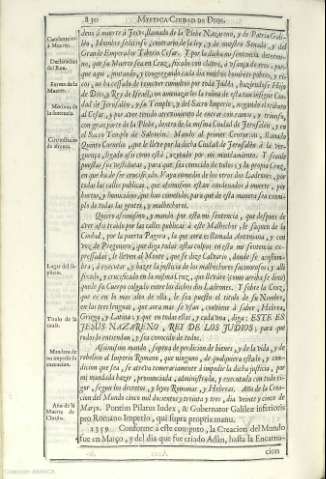 830 MYSTICA CIUDAD DE DIOS.
deno à muerte à Jesus, llamado de la Plebe Nazareno, y de Patria Galileo,
Condenacion à Muerte.
hombre sedicioso, contrario de la ley, y de nuestro Senado, y del
Grande Emperador Tiberio Cesar. Y por la dicha mi sentencia determino,
Declaracion del Reo.
que su Muerte sea en Cruz, fixado con clavos, à usança de reos, porque
aqui, juntando, y congregando cada dia muchos hombres pobres, y ricos,
Forma de la Muerte.
no ha cessado de remover tumultos por toda Judèa, haziendose Hijo
de Dios, y Rey de Israèl, con amenaçar les la ruìna de esta tan insigne Ciudad
Motivos de la Sentencia.
de Jerusalèn, y su Templo, y del Sacro Imperio, negando el tributo
al Cesar, y por aver tenido atrevimiento de entrar con ramos, y triunfo,
con gran parte de la Plebe, dentro de la misma Ciudad de Jerusalèn, y en
el Sacro Templo de Salomòn. Mando al primer Centurion, llamado
Quinto Cornelio, que le lleve por la dicha Ciudad de Jerusalèn à la verguença,
ligado assi como està, y açotado por mi mandamiento. Y seanle
puestas sus vestiduras, para que sea conocido de todos, y la propia Cruz,
en que ha de ser crucificado. Vaya enmedio de los otros dos Ladrones, por
todas las calles publicas, que assimismo estàn condenados à muerte, por
hurtos, y homicidios, que han cometido, para que de esta manera sea exemplo
de todas las gentes, y malhechores.
Quiero assimismo, y mando por esta mi sentencia, que despues de
aver assi traìdo por las calles publicas à este Malhechor, le saquen de la
Ciudad, por la puerta Pagora, la que aora es llamada Antoniana, y con
voz de Pregonero, que diga todas estas culpas en esta mi sentencia expressadas,
le lleven al Monte, que se dize Calvario, donde se acostumbra,
à executar, y hazer la justicia de los malhechores facinorosos, y allì
Lugar del suplicio.
fixado, y crucificado en la misma Cruz, que llevàre (como arriba se dixo)
quede su Cuerpo colgado entre los dichos dos Ladrones. Y sobre la Cruz,
que es en lo mas alto de ella, le sea puesto el titulo de su Nombre,
en las tres lenguas, que aora mas se usan, conviene à saber, Hebrea,
Griega, y Latina; y que en todas ellas, y cada una, diga: ESTE ES
Titulo de la causa.
JESUS NAZARENO, REI DE LOS JUDIOS, para que
todos lo entiendan, y sea conocido de todos.
Assimismo mando, sopena de perdicion de bienes, y de la vida, y de
rebelion al Imperio Romano, que ninguno, de qualquiera estado, y condicion
que sea, se atreva temerariamente à impedir la dicha justicia, por
mi mandada hazer, pronunciada, administrada, y executada con todo rigor,
segun los decretos, y leyes Romanas, y Hebreas. Año de la Creacion
del Mundo cinco mil docientos y treinta y tres, dia veinte y cinco de
Año de la Muerte de Christo.
Março. Pontius Pilatus Iudex, & Gubernator Galilææ inferioris
pro Romano Imperio, qui supra propria manu.
1359. Conforme à este computo, la Creacion del Mundo
fue en Março, y del dia que fue criado Adàn, hasta la Encarnacion